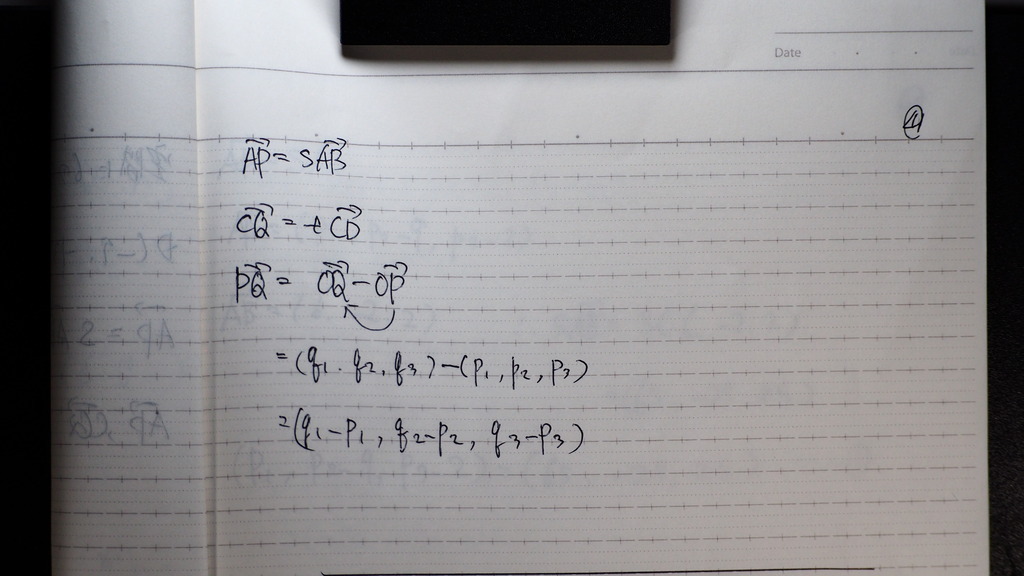 Date
④
$\overrightarrow{AP} = s\overrightarrow{AB}$
$\overrightarrow{CQ} = t\overrightarrow{CD}$
$\overrightarrow{PQ} = \overrightarrow{OQ} - \overrightarrow{OP}$
$= (q_1. q_2, q_3) - (p_1, p_2, p_3)$
$= (q_1 - p_1, q_2 - p_2, q_3 - p_3)$